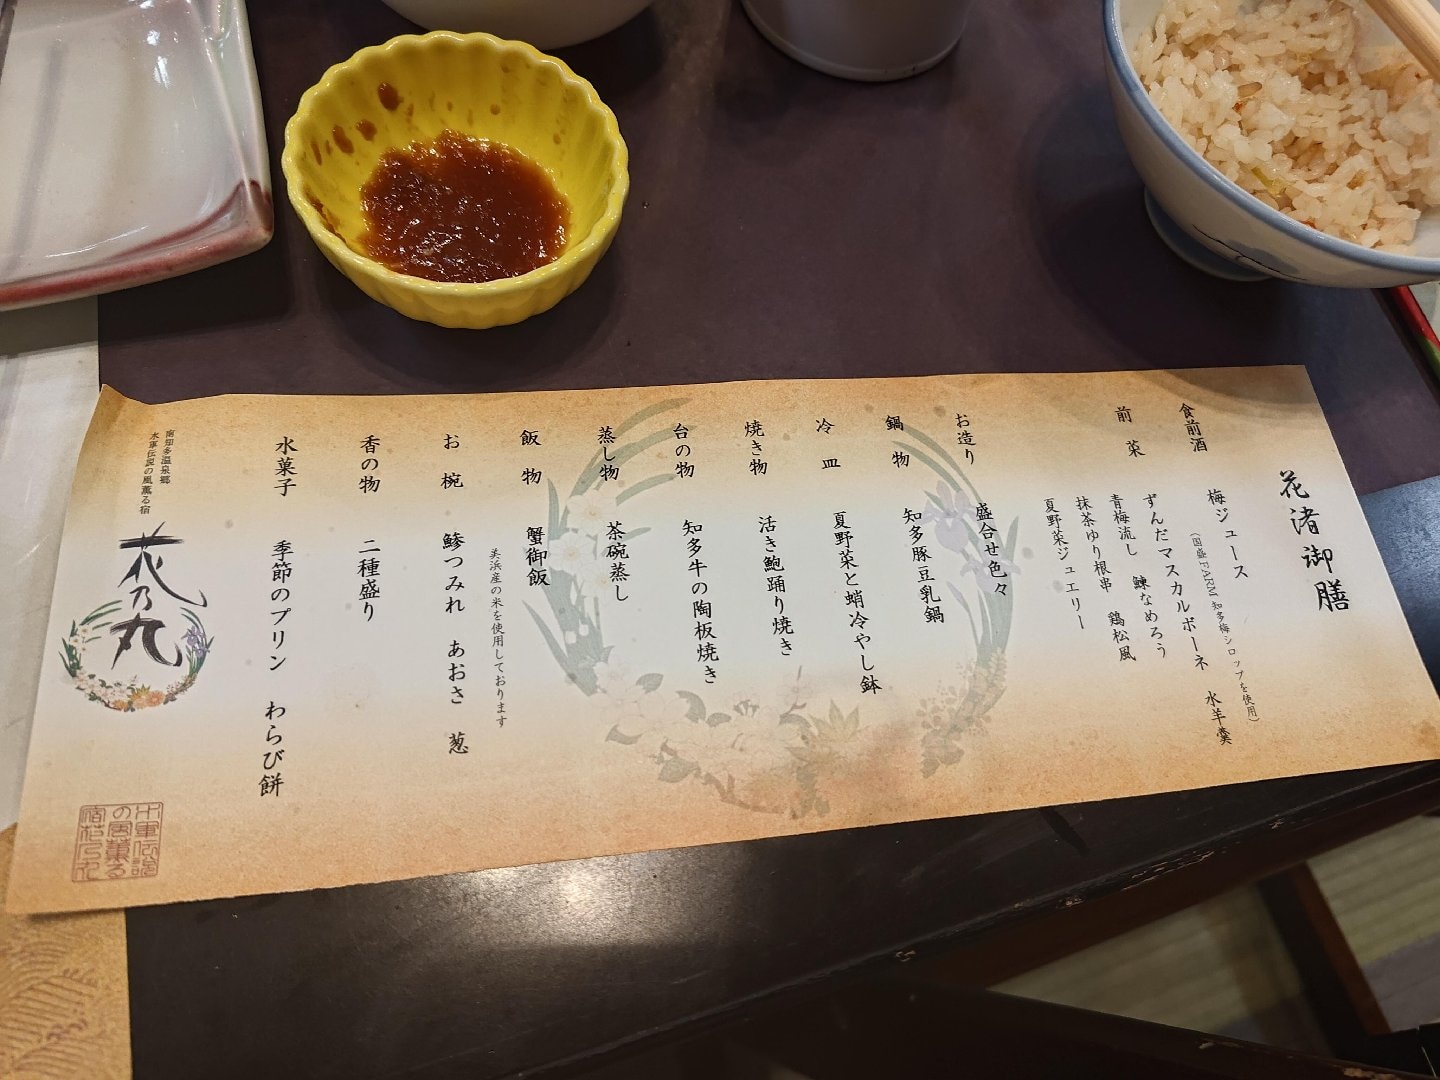 花渚御膳
食前酒 梅ジュース
(國盛FARM 知多梅シロップを使用)
前菜 ずんだマスカルポーネ 水羊羹
青梅流し 鰊なめろう
抹茶ゆり根串 鶏松風
夏野菜ジュエリー
お造り 盛合せ色々
鍋物 知多豚豆乳鍋
冷皿 夏野菜と蛸冷やし鉢
焼き物 活き鮑踊り焼き
台の物 知多牛の陶板焼き
蒸し物 茶碗蒸し
飯物 蟹御飯
美浜産の米を使用しております
お椀 鯵つみれ あおさ 葱
香の物 二種盛り
水菓子 季節のプリン わらび餅
南知多温泉郷
水軍伝説の風薫る宿
花乃丸